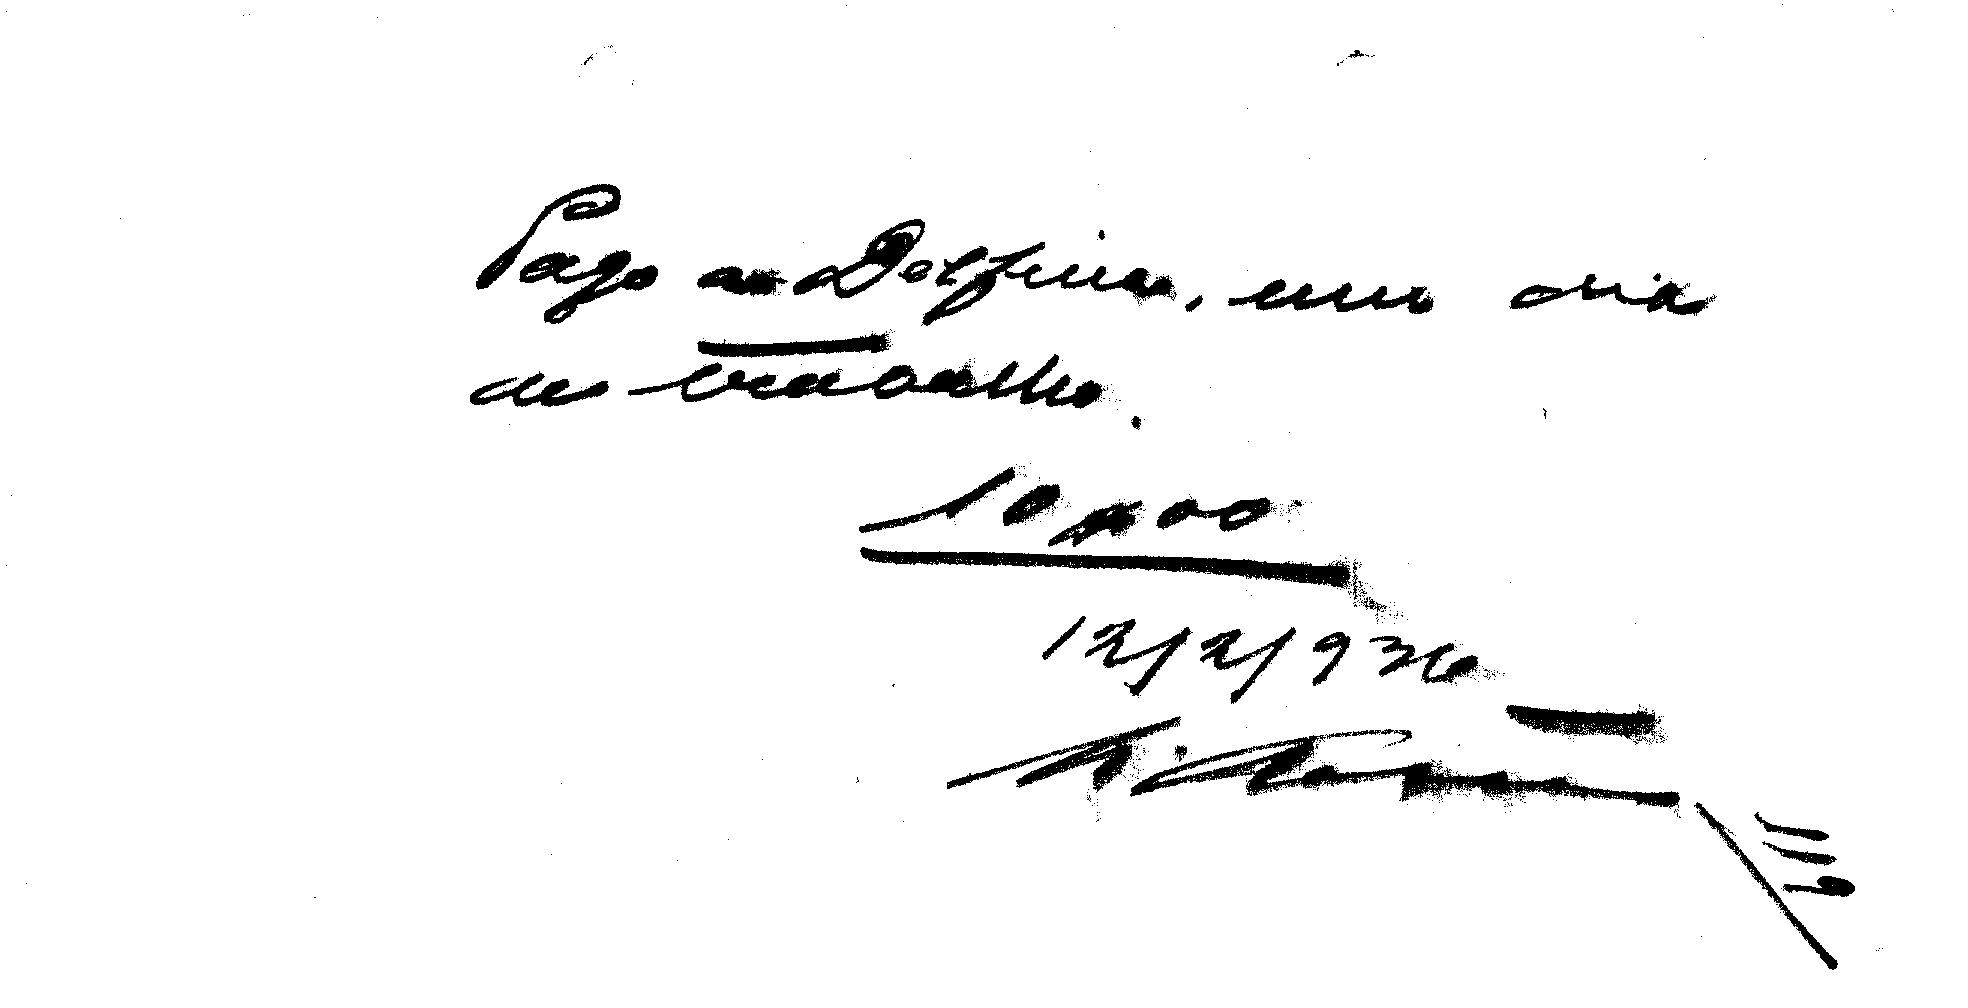 Pago ao Delfina, um dia
de trabalho.
10$000
12/2/936